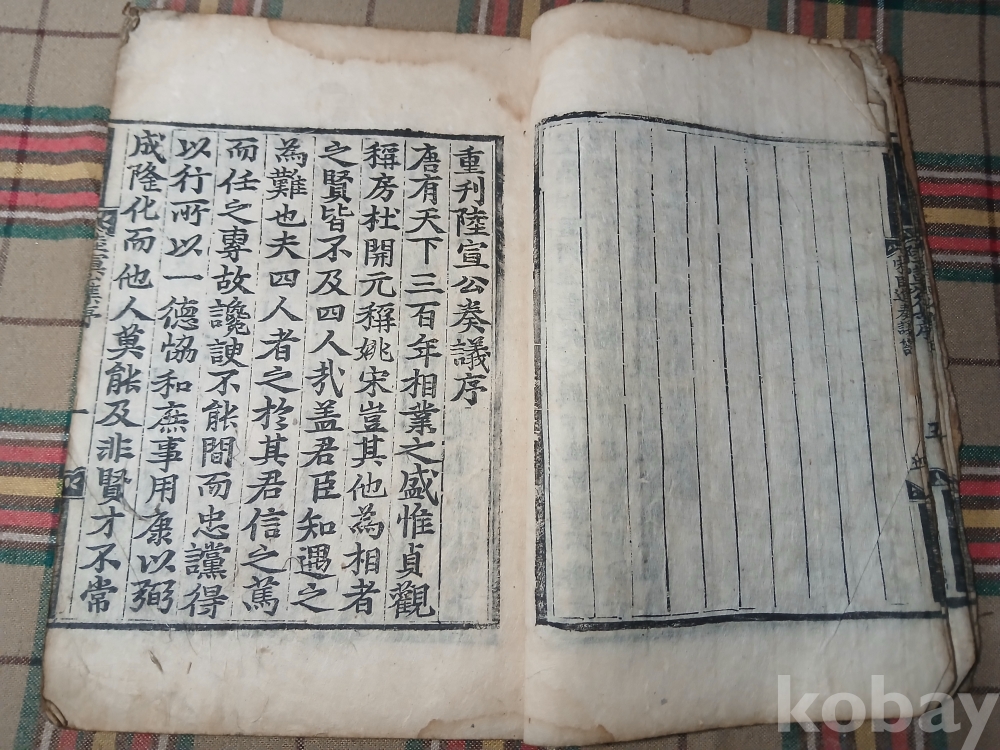 重刊陸宣公奏議序
唐有天下三百年相業之盛惟貞觀
稱房杜開元稱姚宋豈其他為相者
之賢皆不及四人㢤盖君臣知遇之
為難也夫四人者之扵其君信之篤
而任之專故讒諛不能間而忠讜得
以行所以一德恊和庶事用康以弼
成隆化而他人莫能及非賢才不常
一
五
kobay